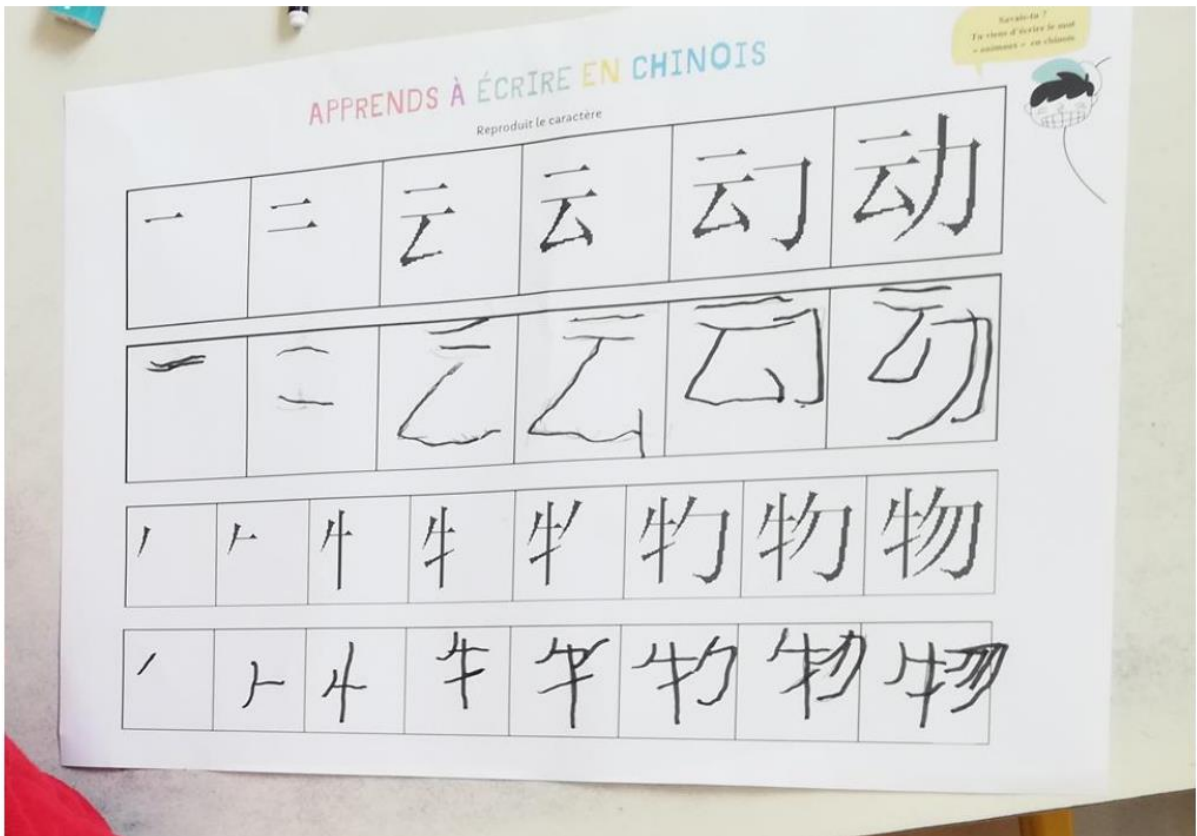 Savais-tu ?
Tu viens d'écrire le mot
« animaux » en chinois
APPRENDS À ÉCRIRE EN CHINOIS
Reproduit le caractère
一 二 云 动
一 二 动
丿 牜 物
丿 牜 物